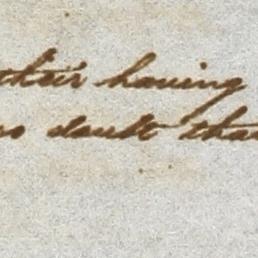 their having
no doubt that